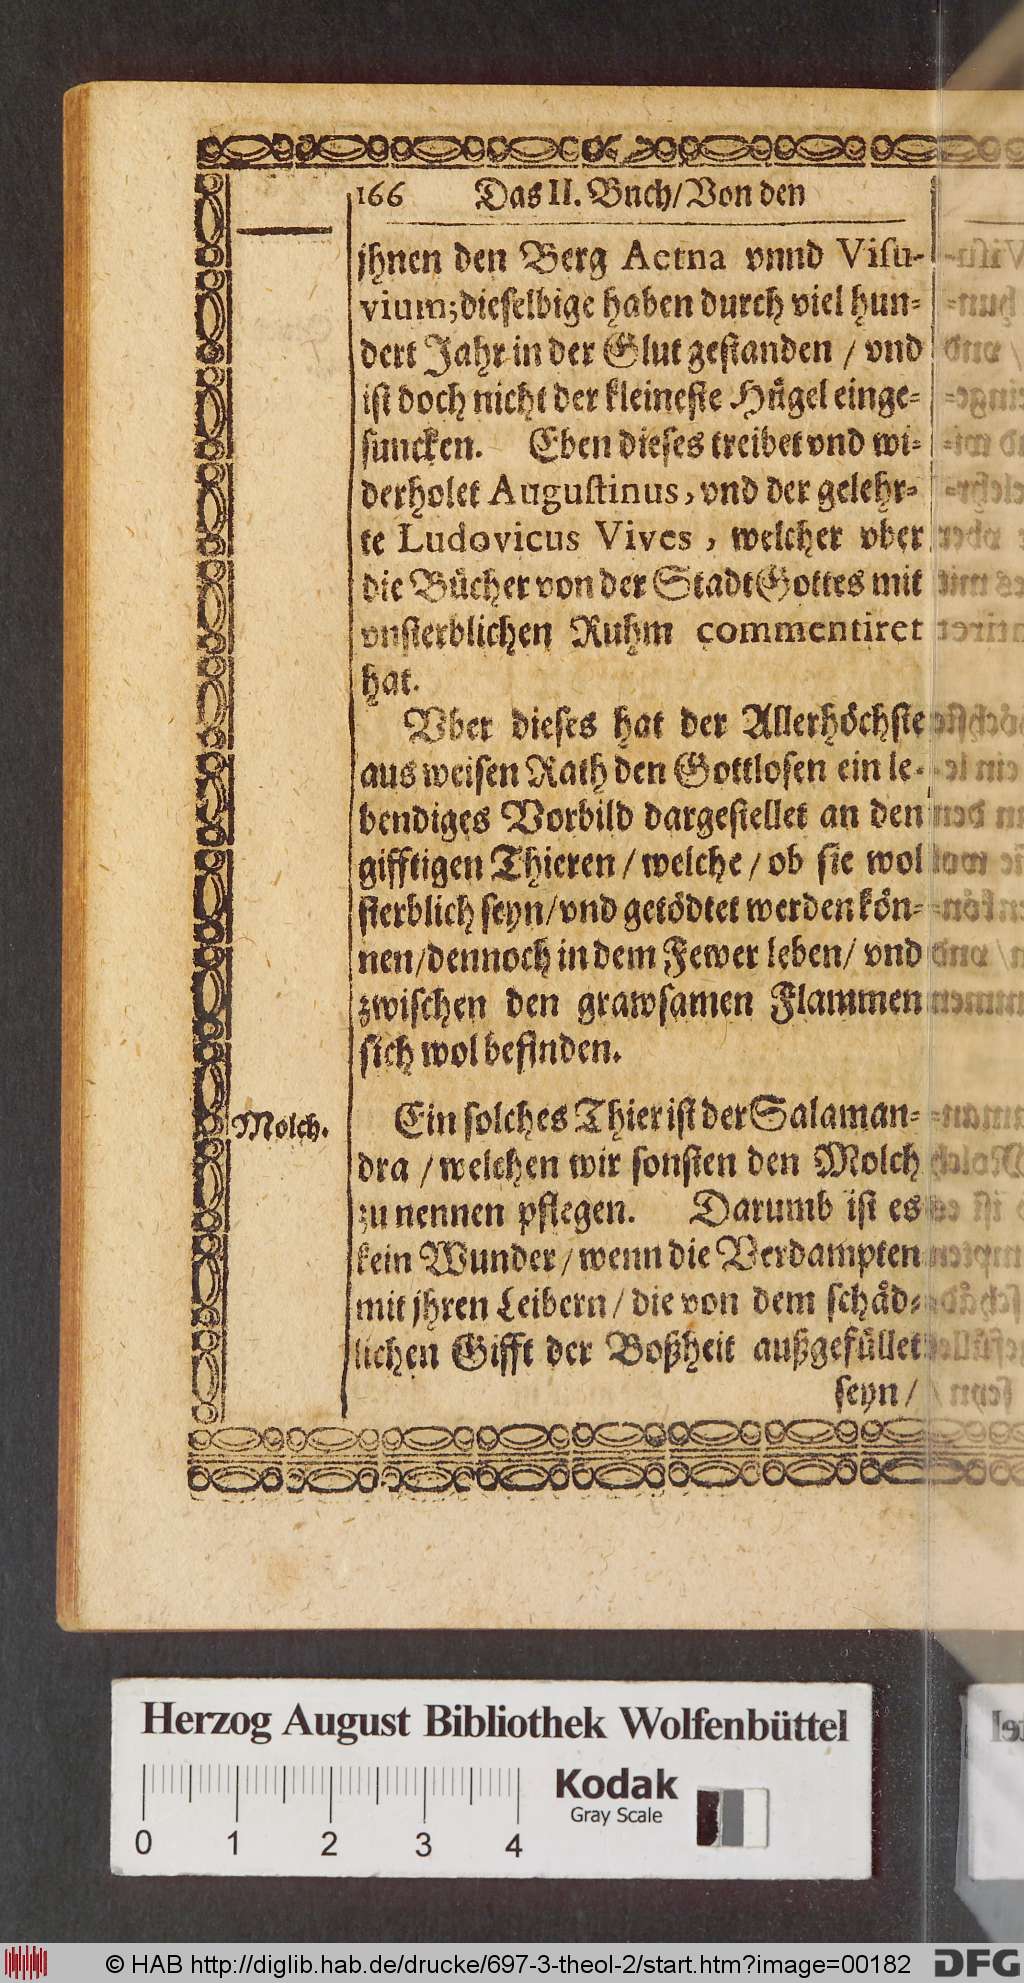 166 Das II. Buch/ Von den
jhnen den Berg Aetna vnnd Visu-
vium; dieselbige haben durch viel hun-
dert Jahr in der Glut gestanden / vnd
ist doch nicht der kleineste Hügel einge-
suncken. Eben dieses treibet vnd wi-
derholet Augustinus, vnd der gelehr-
te Ludovicus Vives, welcher vber
die Bücher von der Stadt Gottes mit
vnsterblichen Ruhm commentiret
hat.
Vber dieses hat der Allerhöchste
aus weisen Rath den Gottlosen ein le-
bendiges Vorbild dargestellet an den
gifftigen Thieren / welche / ob sie wol
sterblich seyn/ vnd getödtet werden kön-
nen/ dennoch in dem Fewer leben/ vnd
zwischen den grawsamen Flammen
sich wol befinden.
Molch.
Ein solches Thier ist der Salaman-
dra / welchen wir sonsten den Molch
zu nennen pflegen. Darumb ist es
kein Wunder / wenn die Verdampten
mit jhren Leibern / die von dem schäd-
lichen Gifft der Boßheit außgefüllet
seyn /
Herzog August Bibliothek Wolfenbüttel
Kodak
Gray Scale
0 1 2 3 4
© HAB http://diglib.hab.de/drucke/697-3-theol-2/start.htm?image=00182
DFG